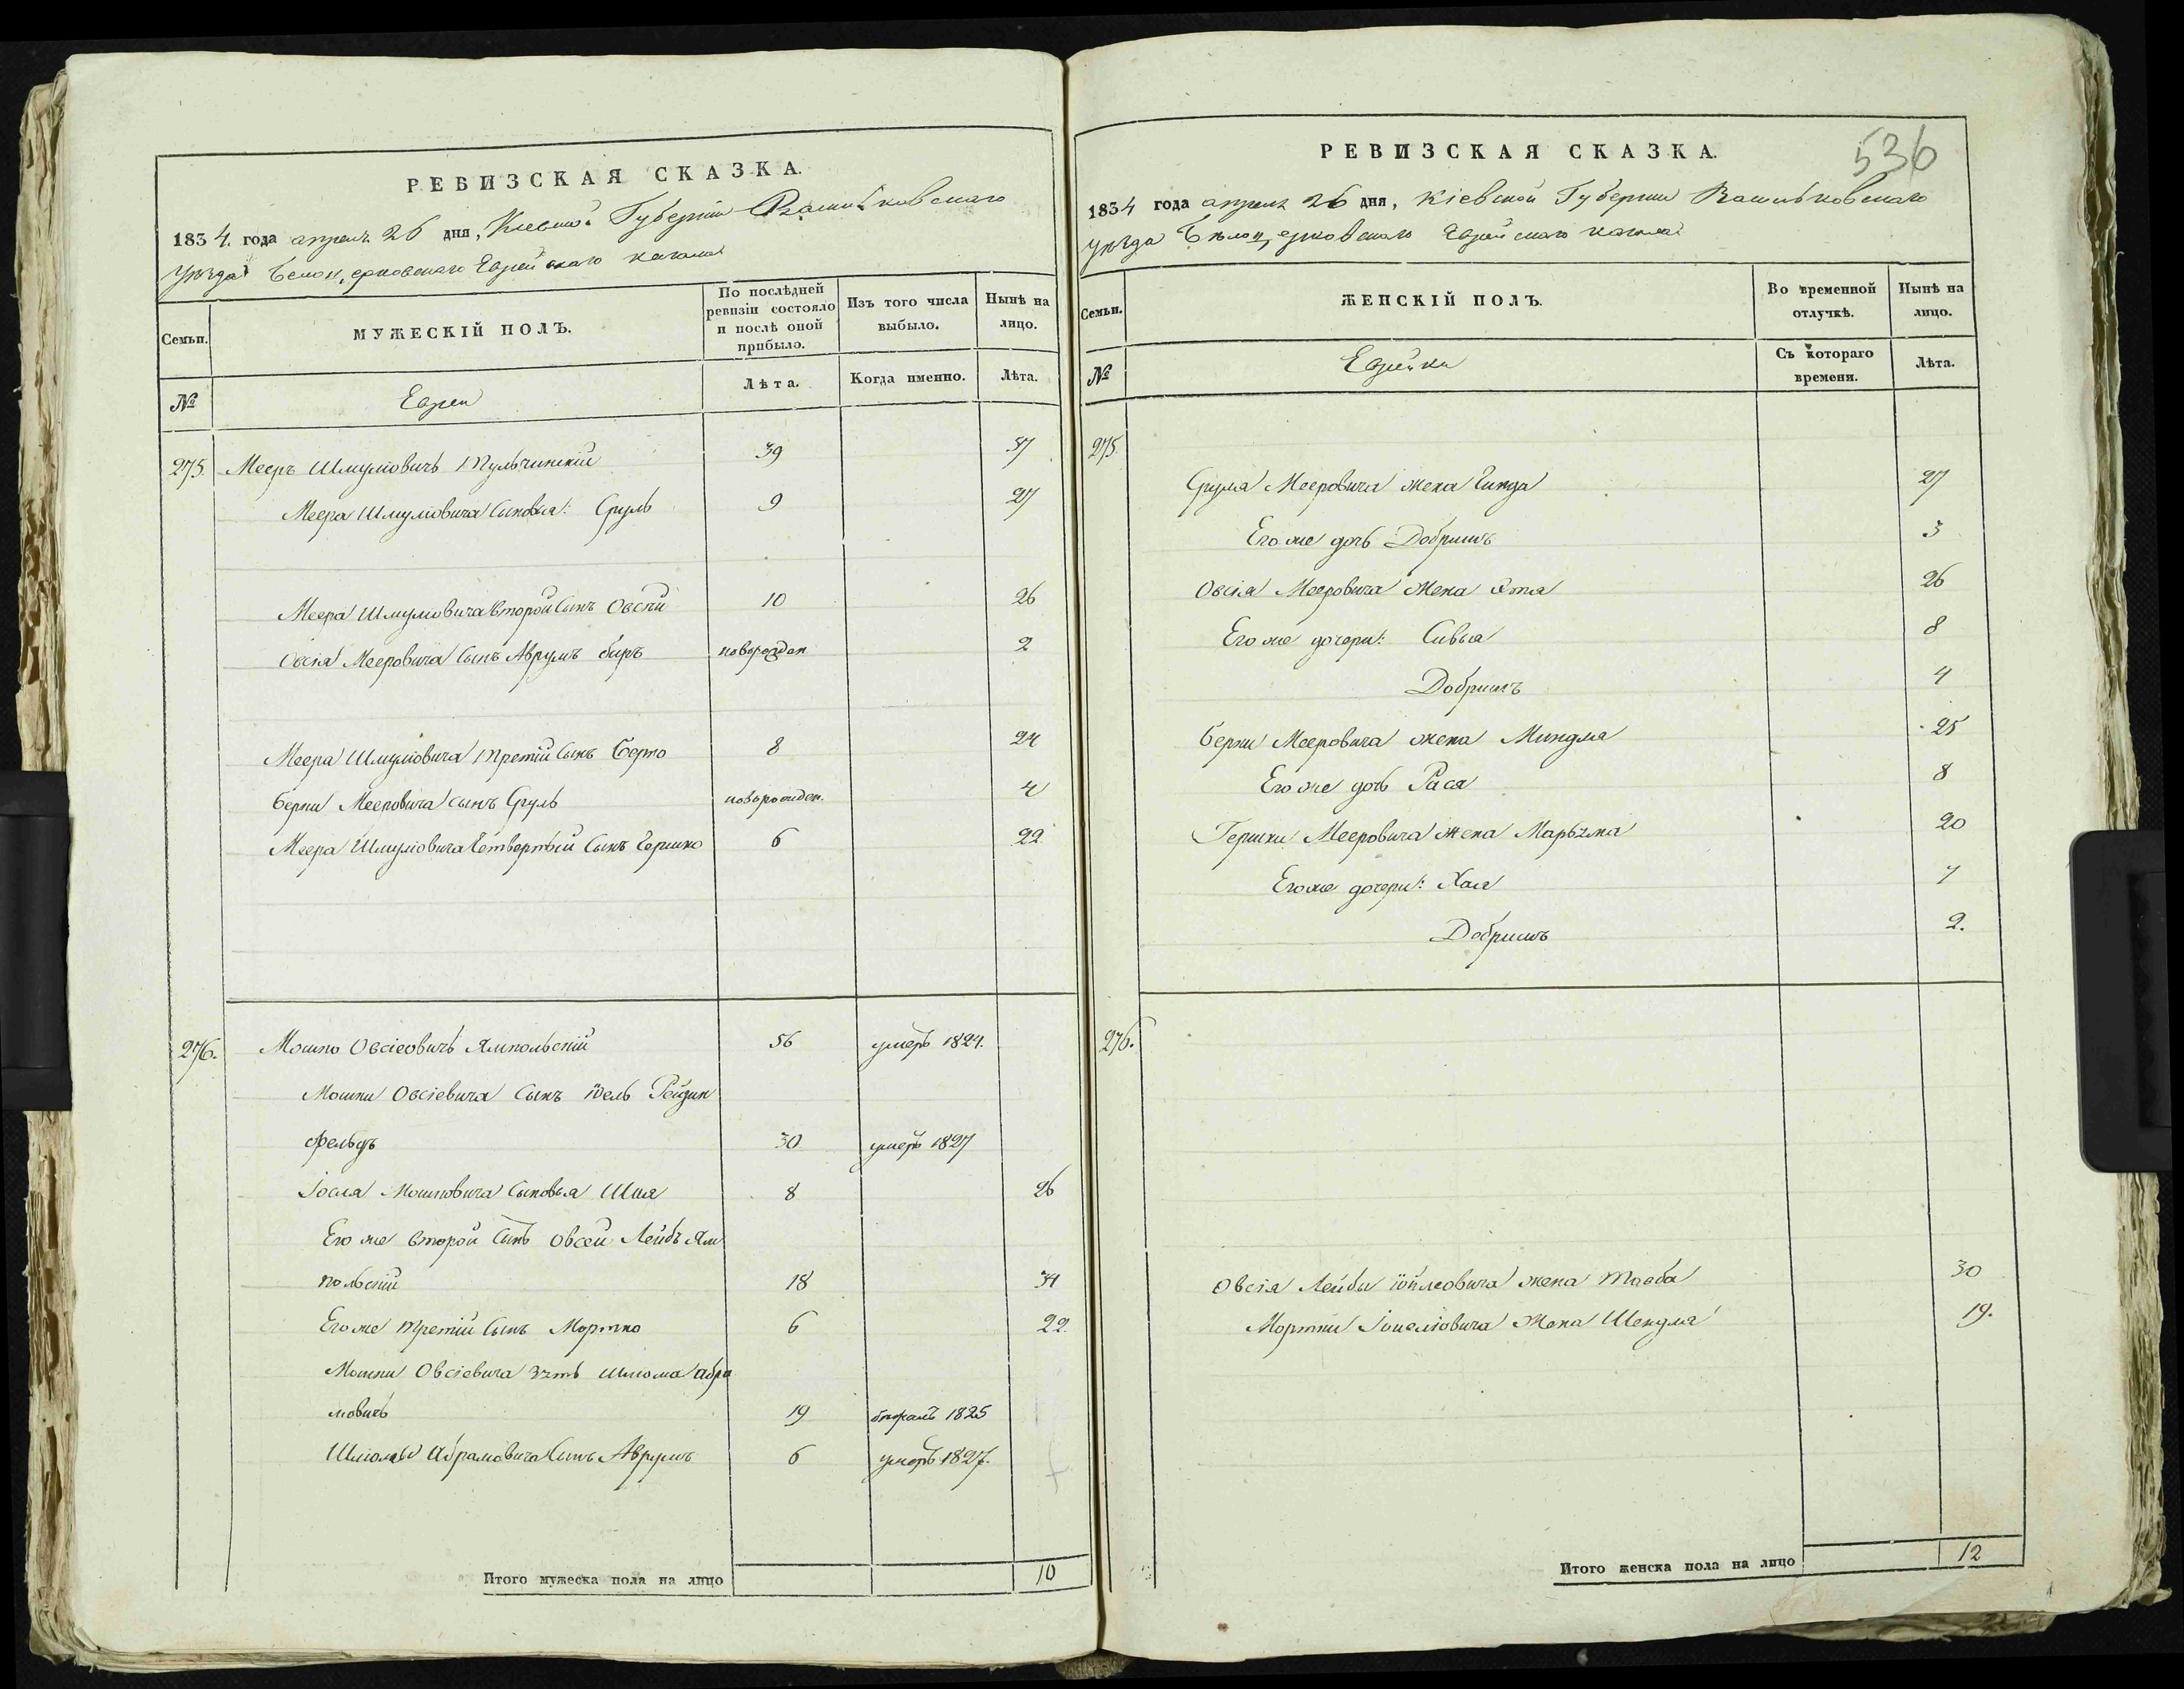 РЕВИЗСКАЯ СКАЗКА.
1834. года апреля 26 дня, Киевской Губернии Васильковскаго
уезда Белоцерковскаго Еврейскаго кагала
Семьи.
МУЖЕСКІЙ ПОЛЪ.
По послѣдней ревизіи состояло и послѣ оной прибыло.
Изъ того числа выбыло.
Нынѣ на лицо.
№
Евреи
Лѣта.
Когда именно.
Лѣта.
275. Мееръ Шмуліовичъ Тульчинскій 39 57
Меера Шмуліовича сыновья: Сруль 9 27
Меера Шмуліовича второй сынъ Овсѣй 10 26
Овсія Мееровича сынъ Аврумъ беръ новорожден 2
Меера Шмуліовича третій сынъ Берко 8 24
Берки Мееровича сынъ Сруль новорожден. 4
Меера Шмуліовича Четвертый сынъ Гершко 6 22
276. Мошко Овсіеовичъ Ямпольскій 56 умеръ 1824.
Мошки Овсіевича сынъ Іось Рейдин
фельдъ 30 умеръ 1827
Іосля Мошковича сыновья Шая 8 26
Его же второй сынъ Овсей Лейбъ Ям
польскій 18 34
Его же третій сынъ Мортко 6 22.
Мошки Овсіевича зять Шлома Абра
мовичъ 19 1825
Шломы Абрамовича сынъ Аврумъ 6 умеръ 1827.
Итого мужеска пола на лицо 10
536
РЕВИЗСКАЯ СКАЗКА.
1834 года апреля 26 дня, Кіевской Губерніи Васильковскаго
уѣзда Бѣлоцерковскаго Еврейскаго кагала
Семьи.
ЖЕНСКІЙ ПОЛЪ.
Во временной отлучкѣ.
Нынѣ на лицо.
№
Еврейки
Съ котораго времени.
Лѣта.
275.
Сруля Мееровича жена Гинда 27
Его же дочь Добришъ 3
Овсія Мееровича жена Эта 26
Его же дочери: Сивья 8
Добришъ 4
Берки Мееровича жена Миндля 25
Его же дочь Рася 8
Гершки Мееровича жена Марьяма 20
Его же дочери: Хая
Добришъ 2.
276.
Овсія Лейбы жена Тауба 30
Мортки жена Шендля 19.
Итого женска пола на лицо 12